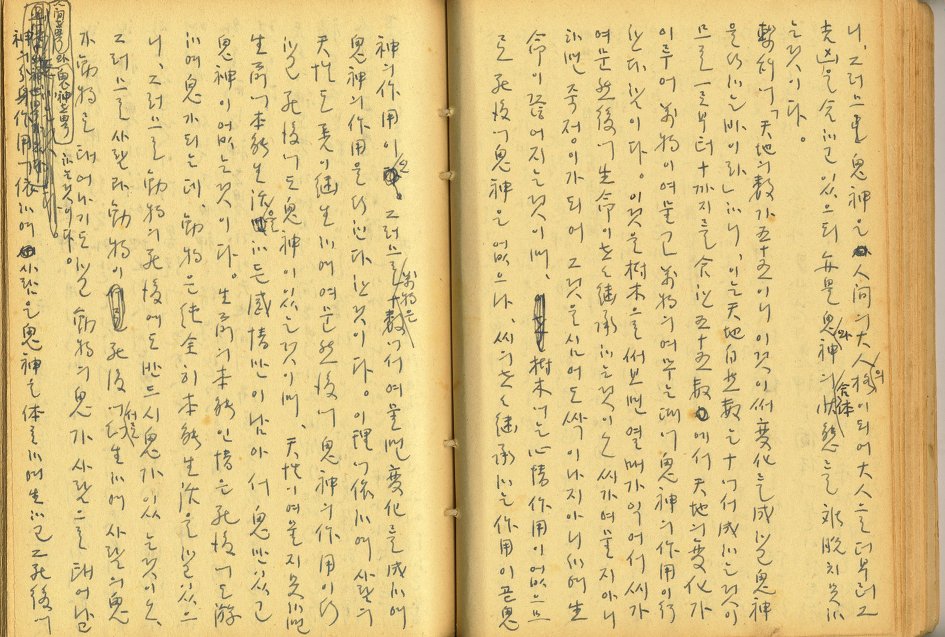 나、그러므로 鬼神은 人间의 大人格이 되어 大人으로 더부러 그
吉凶을 合하고 있으되 每是 鬼神과 合体의 状態를 脱치 못하
는것이다。
繫辞에「天地의 数가 五十五이니 이것이 써 変化를 成하고 鬼神
을 行하는 바이라」하니、이는 天地自然数는 十에서 成하는것이
므로 一로부터 十까지를 合한 五十五数에서 天地의 変化가
이루어 萬物이 여물고 萬物의 여무는데에 鬼神의 作用이 行
한다 함이다。이것을 樹木으로써 보면 열매가 익어서 씨가
여문然後에 生命이 서로 継承하는것이오 씨가 여물지 아니
하면 죽정이가 되어 그것을 심어도 싹이 나지 아니하여 生
命이 끊어지는것이며、樹木에는 心情作用이 없으므
로 死後에 鬼神은 없으나、씨의 서로 継承하는 作用이 곧 鬼
神의 作用이오 그러므로 萬物은 数에서 여물면 変化를 成하여
鬼神의 作用을 行한다 한것이다。이 理에 依하여 사람의
天性도 善이 継生하여 여문然後에 鬼神의 作用이 行
하고 死後에도 鬼神이 있는것이며、天性이 여물지 못하면
生前에 本能生活을 하든 感情만이 남아서 鬼만 있고
鬼神이 없는것이다。生前의 本能인 情은 死後에도 游
하여 鬼가 되는데、動物은 純全히 本能生活을 하고 있으
니、그러므로 動物의 死後에도 반드시 鬼가 있는것이오、
그러므로 사람과 動物이 死後에 서로 転生하여 사람의 鬼
가 動物로 태어나기도 하고 動物의 鬼가 사람으로 태어나고
하는것이다。
人间의 鬼와 鬼神으로
神의 分身作用에 依하여 사람은 鬼神을 体로하여 生하고 그 死後에